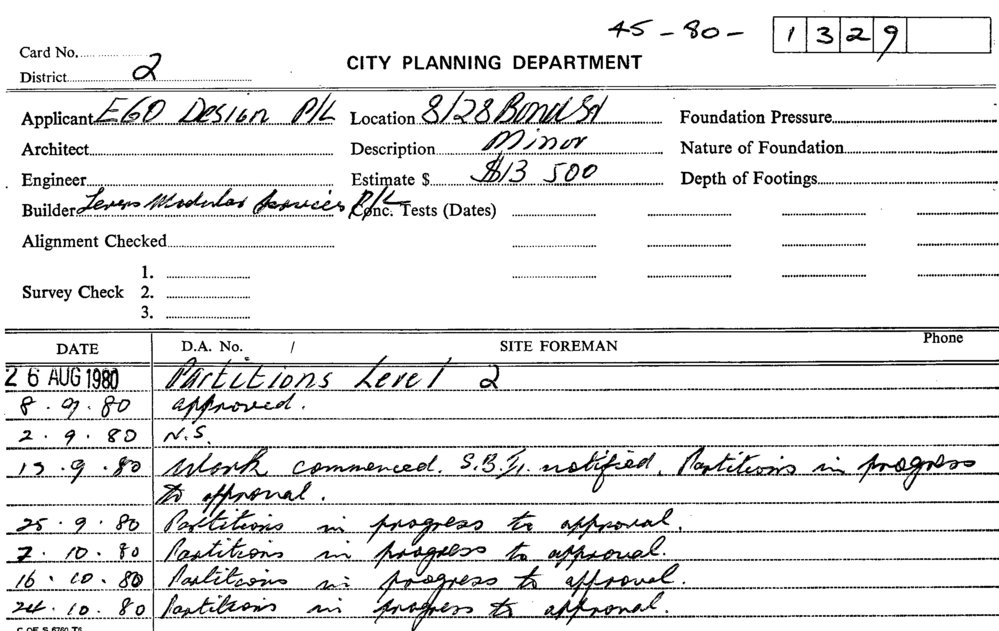 45-80- 1329
Card No.
District 2
CITY PLANNING DEPARTMENT
Applicant EGO Design P/L Location 8/28 Bond St Foundation Pressure
Architect Description Minor Nature of Foundation
Engineer Estimate $ $13 500 Depth of Footings
Builder Modular Services P/L Conc. Tests (Dates)
Alignment Checked
1.
Survey Check 2.
3.
DATE D.A. No. / SITE FOREMAN Phone
26 AUG 1980 Partitions Level 2
8.9.80 approved.
2.9.80 N.S.
.9.80 Work commenced. notified. Partitions in progress
to approval.
25.9.80 Partitions in progress to approval.
7.10.80 Partitions in progress to approval.
16.10.80 Partitions in progress to approval.
24.10.80 Partitions in progress to approval.
C OF S 6760 T6